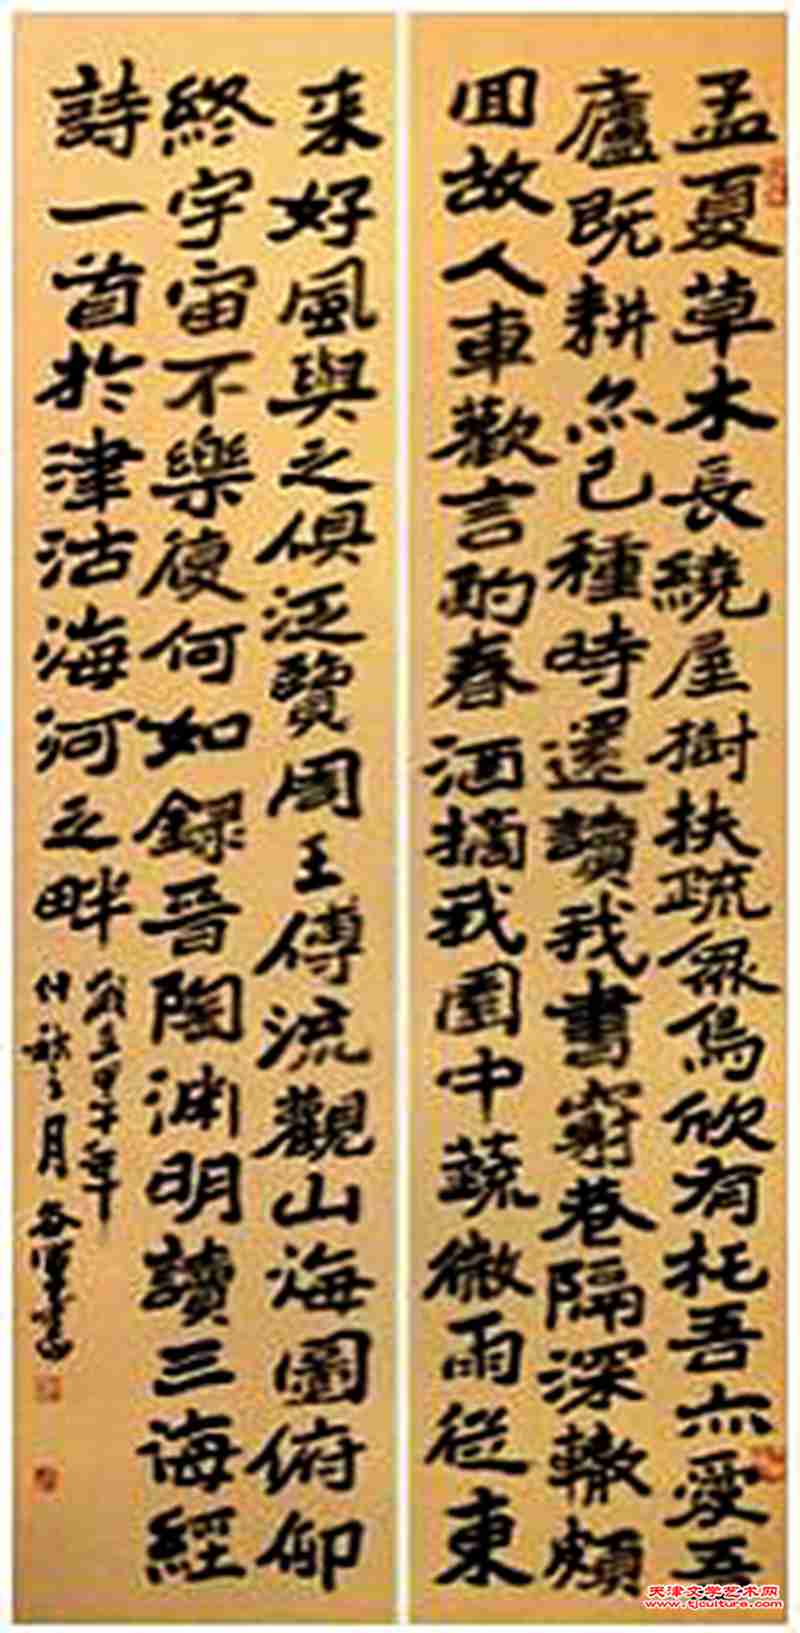 孟夏草木長繞屋樹扶疏衆鳥欣有托吾亦愛吾
廬既耕亦已種時還讀我書窮巷隔深轍頗
回故人車歡言酌春酒摘我園中蔬微雨從東
来好風與之俱泛覽周王傳流觀山海圖俯仰
終宇宙不樂復何如録晉陶渊明讀三海經
詩一首於津沽海河之畔
歲在甲午年
仲秋之月谷
天津文学艺术网
www.tjculture.com